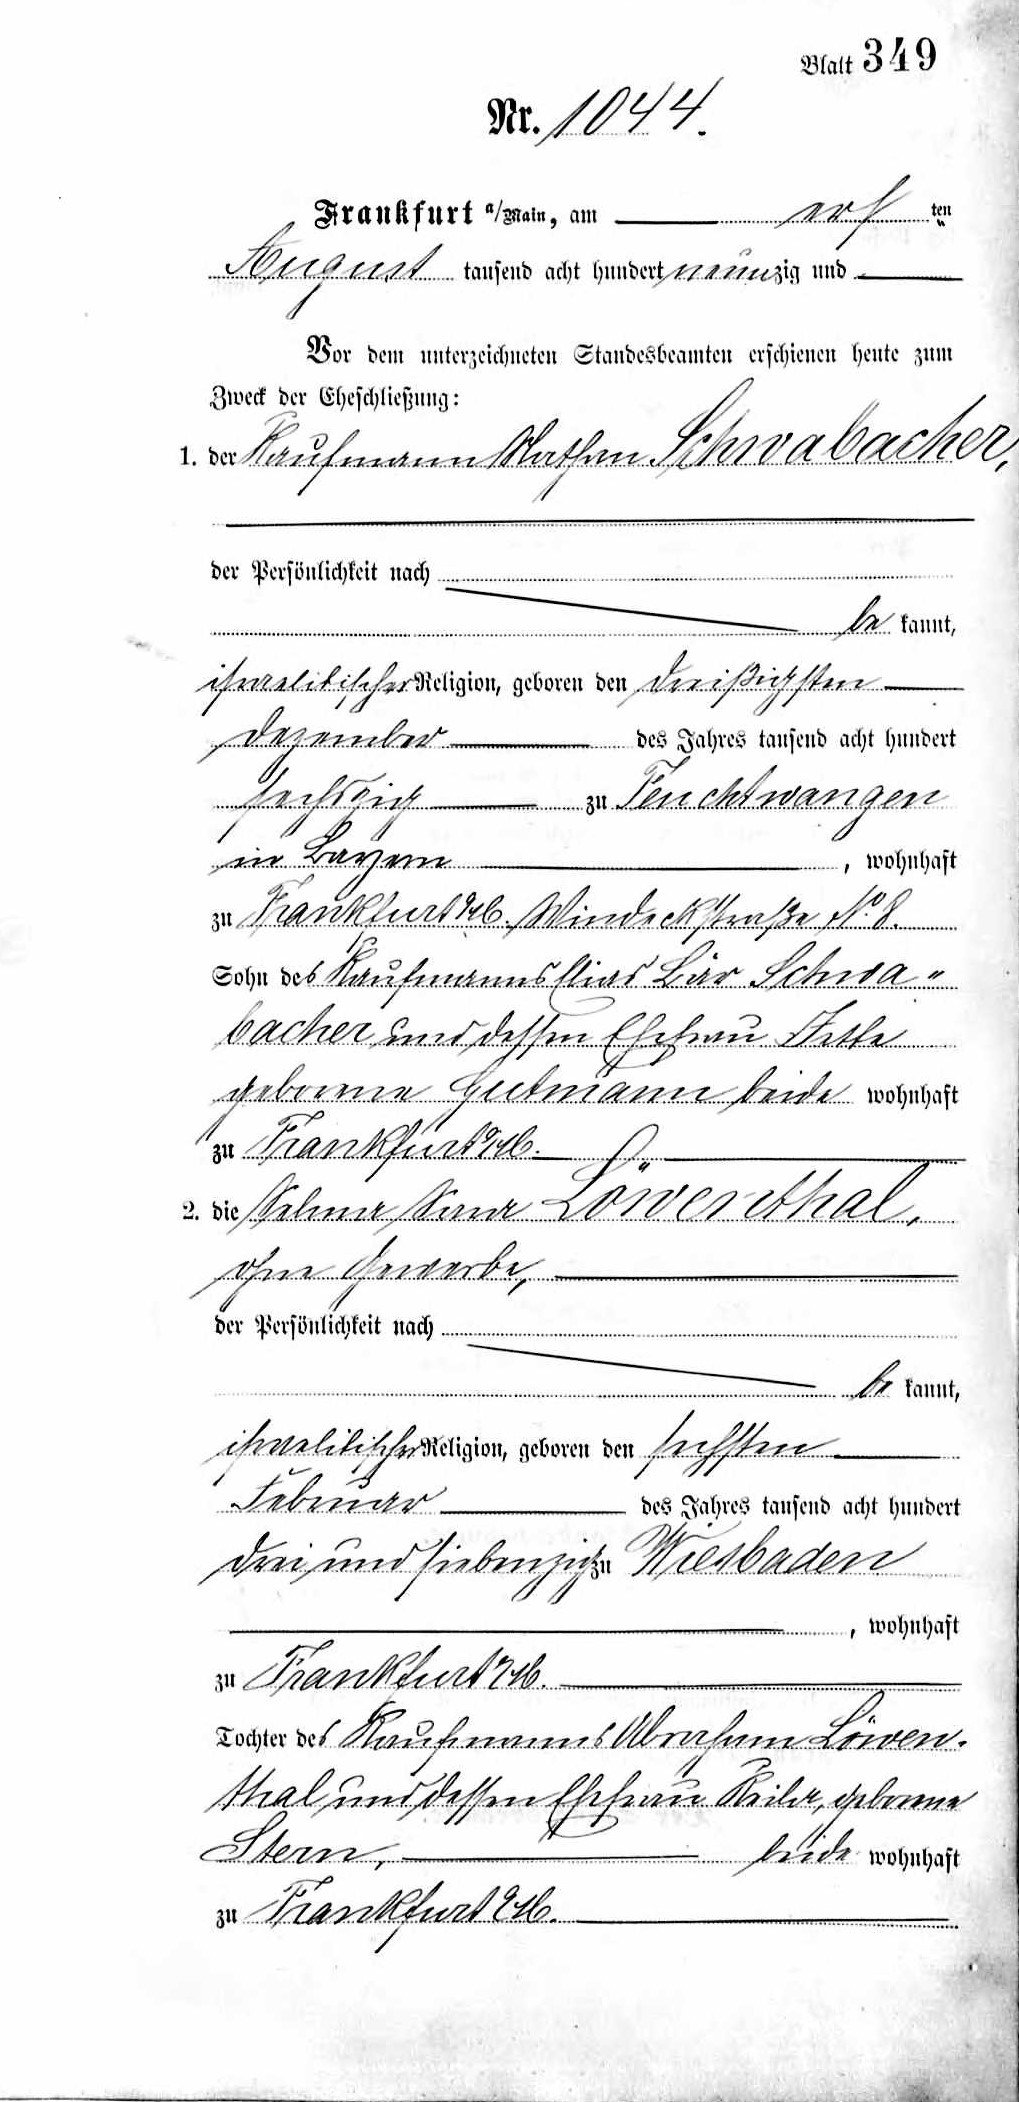 Blatt 349
Nr. 1044.
Frankfurt a/Main, am erf ten
August tausend acht hundert neunzig und
Vor dem unterzeichneten Standesbeamten erschienen heute zum
Zweck der Eheschließung:
1. der Kaufmann Nathan Schwabacher,
der Persönlichkeit nach
be kannt,
israelitischer Religion, geboren den dreißigsten
Dezember des Jahres tausend acht hundert
sechszig zu Feuchtwangen
in Bayern, wohnhaft
zu Frankfurt a/M. Windeckstraße No. 8.
Sohn des Kaufmanns Elias Bär Schwa"
bacher und dessen Ehefrau Jette
geborene Gutmann beide wohnhaft
zu Frankfurt a/M.
2. die Selma Sara Löwenthal,
ohne Gewerbe,
der Persönlichkeit nach
be kannt,
israelitischer Religion, geboren den sechsten
Februar des Jahres tausend acht hundert
drei und siebenzig zu Wiesbaden
, wohnhaft
zu Frankfurt a/M.
Tochter des Kaufmanns Abraham Löwen-
thal und dessen Ehefrau, geborene
Stern, beide wohnhaft
zu Frankfurt a/M.